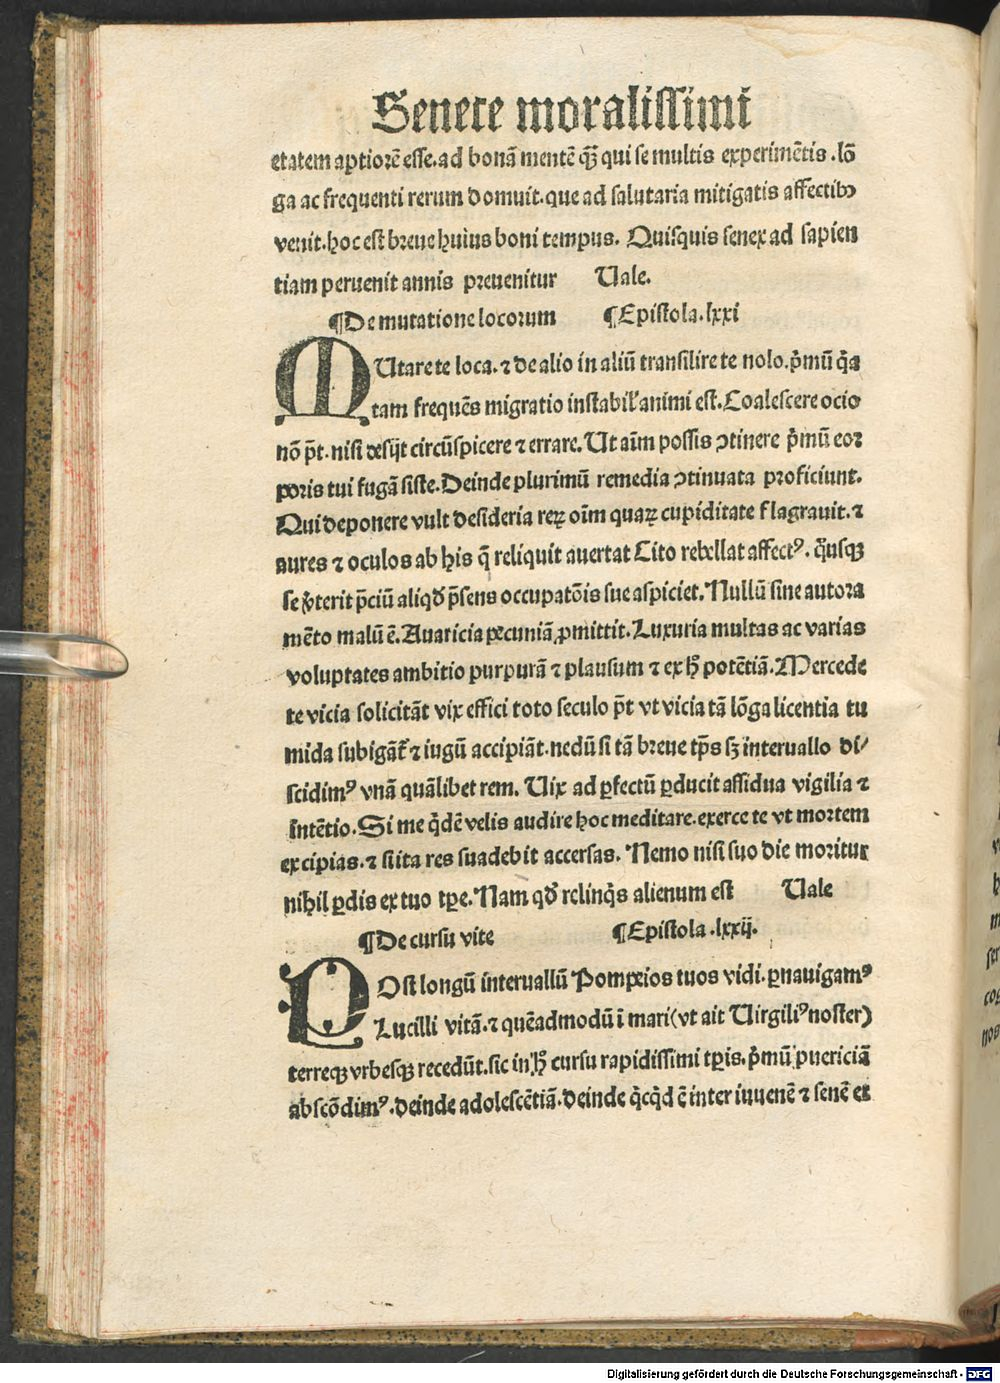 Senece moralissimi
etatem aptiorē esse.ad bonā mentē qȝ̄ qui se multis experimētis .lō
ga ac frequenti rerum domuit.que ad salutaria mitigatis affectibꝰ
venit.hoc est breue huius boni tempus. Quisquis senex ad sapien
tiam peruenit annis preuenitur Uale.
¶De mutatione locorum ¶Epistola.lxxi
MUtare te loca.⁊ de alio in aliū transilire te nolo.p̄mū q̄a
tam frequēs migratio instabil' animi est.Coalescere ocio
nō p̄t.nisi desijt circūspicere ⁊ errare.Ut aīm possis ↄtinere p̄mū coꝛ
poris tui fugā siste.Deinde plurimū remedia ↄtinuata proficiunt.
Qui deponere vult desideria reꝝ oīm quaꝝ cupiditate flagrauit.⁊
aures ⁊ oculos ab his q̄ reliquit auertat Cito rebellat affectꝰ. q̄usqȝ
se p̄terit p̄ciū aliqđ p̄sens occupatōis sue aspiciet.Nullū sine autora
mēto malū ē.Auaricia pecuniā ꝓmittit.Luxuria multas ac varias
voluptates ambitio purpurā ⁊ plausum ⁊ ex ħ potētiā.Mercede
te vicia solicitāt vix effici toto seculo p̄t vt vicia tā lōga licentia tu
mida subigāt᷑ ⁊ iugū accipiāt.nedū si tā breue tp̄s sȝ interuallo di/
scidimꝰ vnā quālibet rem. Uix ad ꝑfectū ꝑducit assidua vigilia ⁊
intētio.Si me q̄dē velis audire hoc meditare.exerce te vt mortem
excipias.⁊ si ita res suadebit accersas. Nemo nisi suo die moritur
nihil ꝑdis ex tuo tꝑe.Nam qđ relinq̄s alienum est Uale
¶De cursu vite ¶Epistola .lxxij.
POst longū interuallū Pompeios tuos vidi.ꝑnauigamꝰ
Lucilli vitā.⁊ quēadmodū ī mari(vt ait Uirgiliꝰ noster)
terreqȝ vrbesqȝ recedūt.sic in ħ cursu rapidissimi tꝑis.p̄mū puericiā
abscōdimꝰ.deinde adolescētiā.deinde q̄cq̄d ē inter iuuenē ⁊ senē et
Digitalisierung gefördert durch die Deutsche Forschungsgemeinschaft - DFG